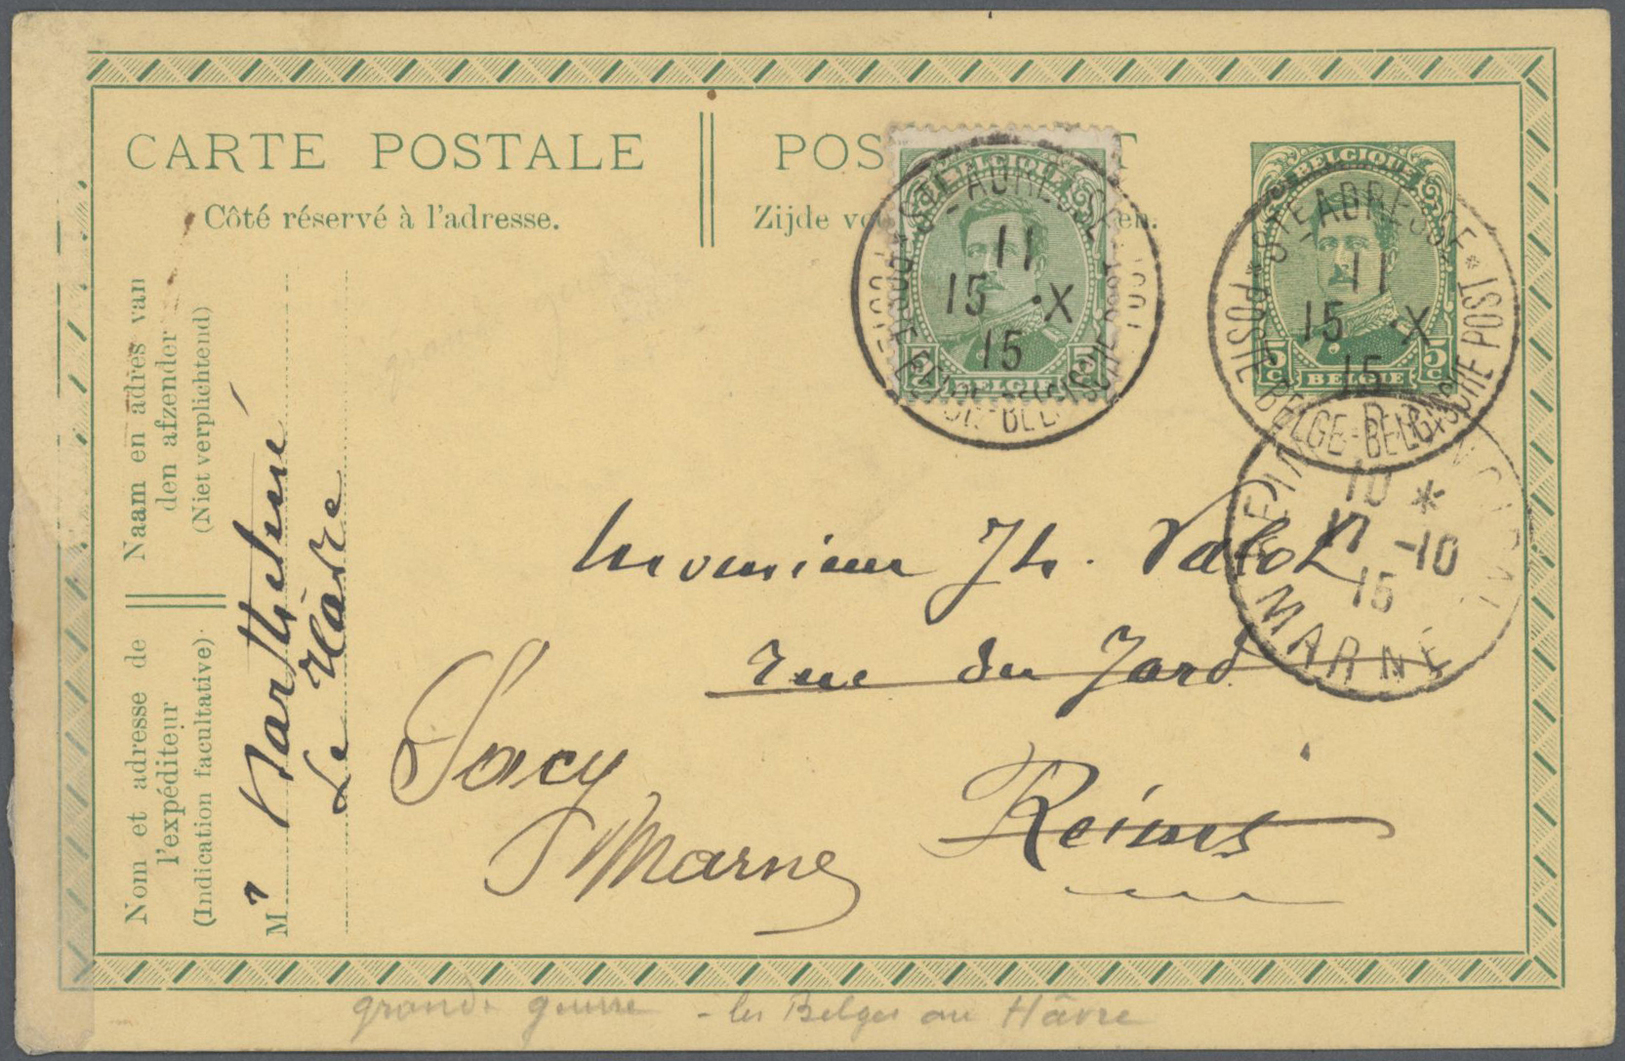 CARTE POSTALE
Côté réservé à l'adresse.
POS T
Zijde vo en.
BELGIQUE
5 c 5 c
BELGIE
BELGIQUE
5 c 5 c
BELGIE
* STE ADRESSE * POSTE BELGE-BELGISCHE POST
11
15 ·X
15
* STE ADRESSE * POSTE BELGE-BELGISCHE POST
11
15 ·X
15
MARNE
10 *
17 -10
15
Naam en adres van
den afzender
(Niet verplichtend)
Nom et adresse de
l'expéditeur
(Indication facultative).
Mr Barthelemé
Le Havre
Monsieur Jh. Valot
rue du Jard
Reims
Sacy
Marne
grande guerre - les Belges au Hâvre